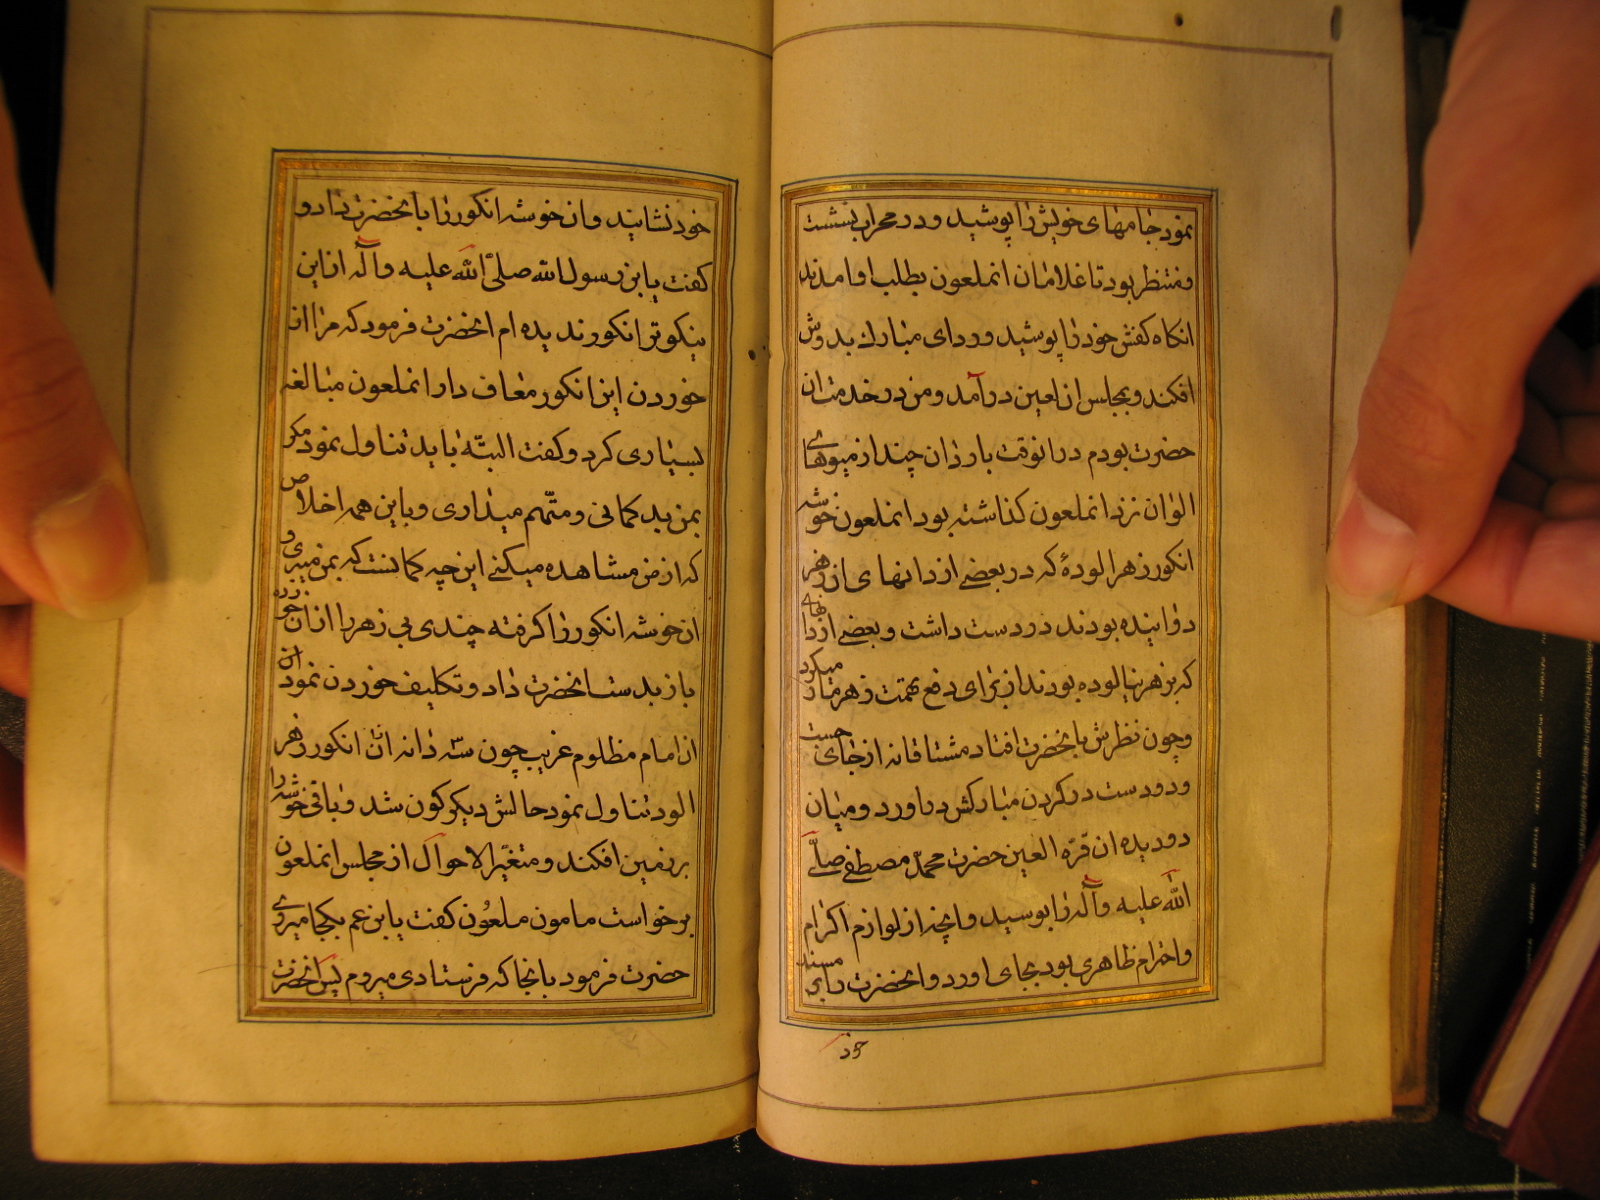 نمود جامهای خویش را پوشید و در محراب نشست
و منتظر بود تا غلامان انملعون بطلب او امدند
انکاه کفش خود را پوشید و ردای مبارك بدوش
افکند و بمجلس ان لعین درآمد و من در خدمت ان
حضرت بودم در انوقت بار زان چند از میوهای
الوان نزد انملعون کذاشته بود انملعون خوشه
انکور زهر الودهٔ که در بعضے از دانهای ان زهر
دوانیده بودند در دست داشت و بعضے از دانهای
که بزهر نیالوده بودند از برای دفع تهمت زهر مار میکرد
و چون نظرش بانحضرت افتاد مشتاقانه از جای جست
و دو دست در کردن مبارکش دراورد و میان
دو دیده ان قرة العین حضرت محمّد مصطفی صلّے
الله علیه وآله را بوسید و انچه از لوازم اکرام
و احترام ظاهری بود بجای اورد و انحضرت را بر مسند
خود
خود نشانید و ان خوشه انکور را بانحضرت داد و
کفت یابن رسول الله صلّی الله علیه وآله از این
نیکوتر انکور ندیده ام انحضرت فرمود که مرا از
خوردن این انکور معاف دار انملعون مبالغه
بسیاری کرد و کفت البتّه باید تناول نمود مکر
بمن بد کمانی و متّهم میداری و با این همه اخلاص
که از من مشاهده میکنے این چه کمانست که بمن میبری و
ان خوشه انکور را کرفته چندی بی زهر را از ان خورده
باز بدست انحضرت داد و تکلیف خوردن نمود ان
ان امام مظلوم غریب چون سه دانه ان انکور زهر
الود تناول نمود حالش دیکرکون شد و باقی خوشه را
بر زمین افکند و متغیّر الاحوال از مجلس انملعون
برخواست مامون ملعون کفت یابن عم بکجا میروی
حضرت فرمود بانجا که فرستادی میروم پس انحضرت